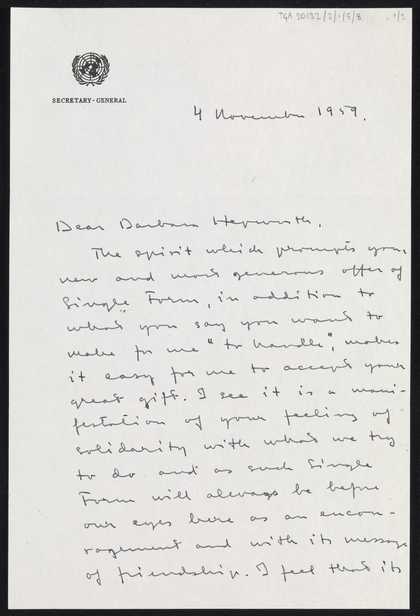 TGA 20132/2/1/5/8
1/2
SECRETARY-GENERAL
4 November 1959.
Dear Barbara Hepworth,
The spirit which prompts your
new and most generous offer of
Single Form, in addition to
what you say you want to
make for me "to handle", makes
it easy for me to accept your
great gift. I see it is a mani-
festation of your feeling of
solidarity with what we try
to do and as such Single
Form will always be before
our eyes here as an encou-
ragement and with its message
of friendship. I feel that its